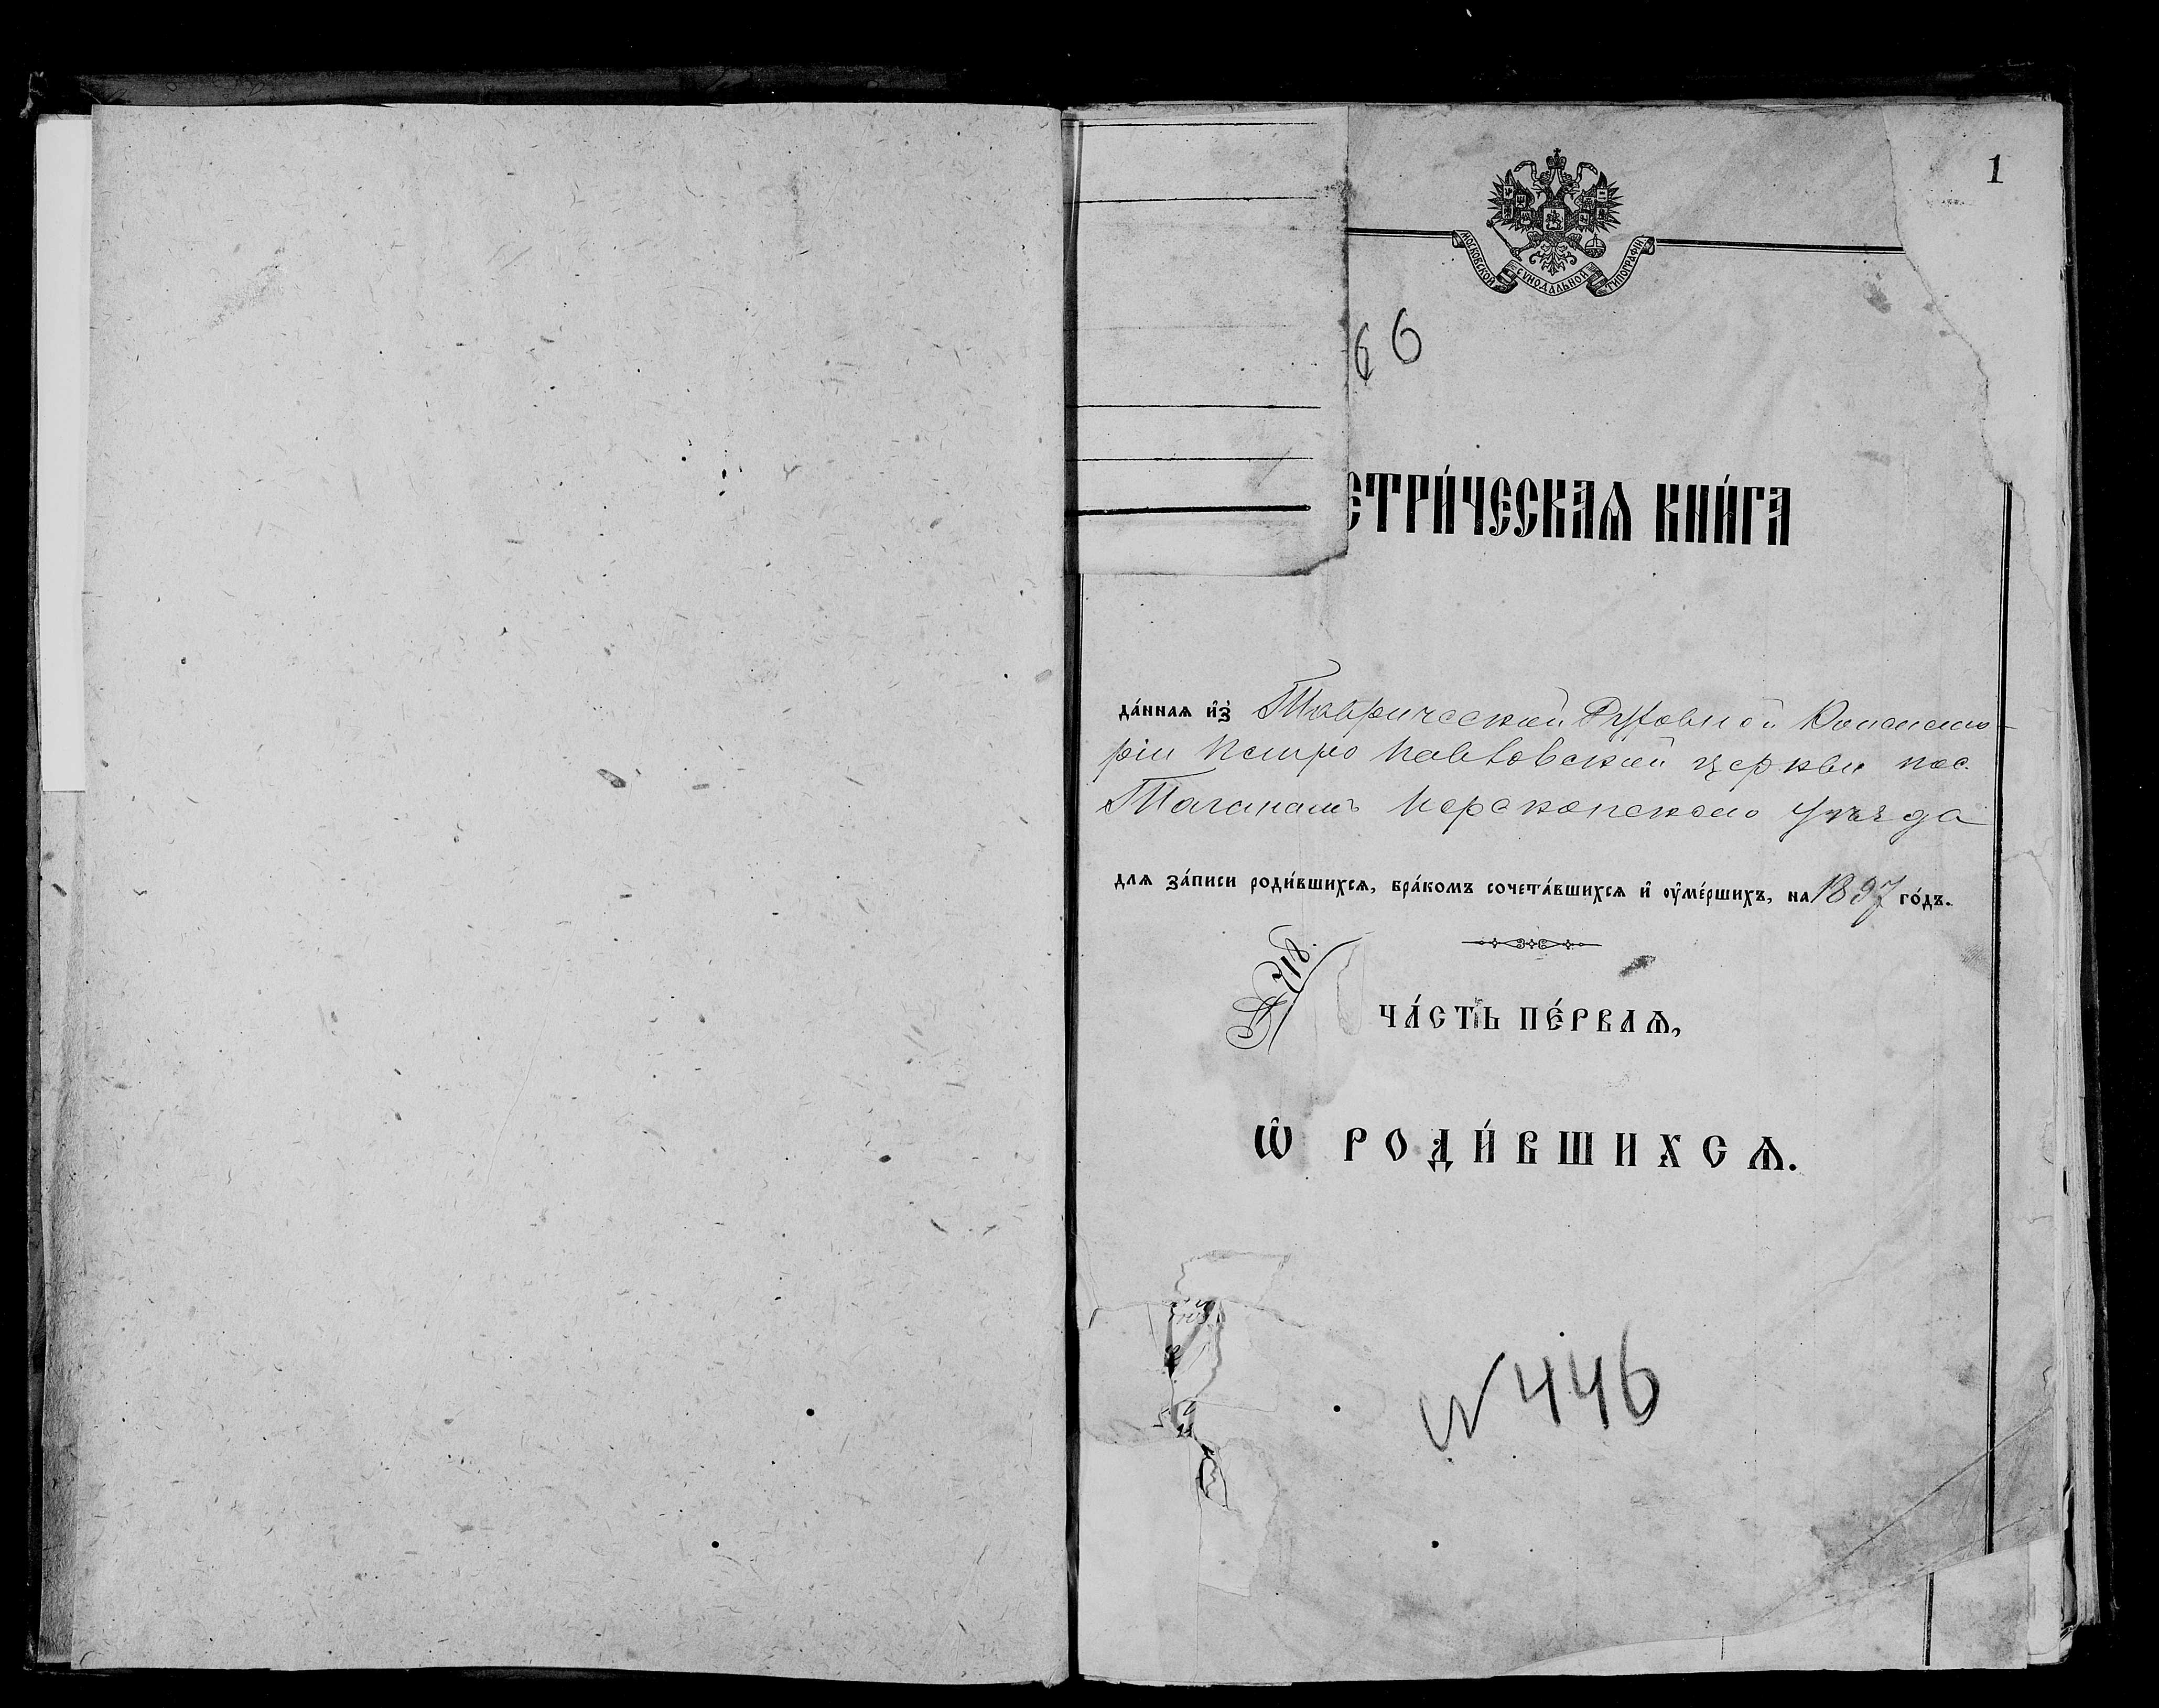 1
МОСКОВСКОЙ СѴНОДАЛЬНОЙ ТИПОГРАФІИ
66
ЕТРИ́ЧЕСКАѦ КНИ́ГА
да́ннаѧ и҆з̾ Таврической Духовной Консисто-
ріи Петро Павловской церкви пос.
Таганашъ Перекопскаго уѣзда
для за́писи роди́вшихсѧ, бра́комъ сочета́вшихсѧ и҆ оу҆ме́ршихъ, на 1897 го́дъ.
718.
ЧА́СТЬ ПЕ́РВАѦ,
Ѡ҆ РОДИ́ВШИХСѦ.
N 446